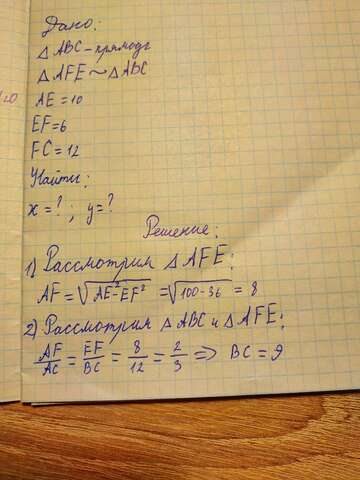 Дано:
△ABC - прямоуг
△AFE ~ △ABC
AE = 10
EF = 6
FC = 12
Найти:
x = ? ; y = ?
Решение:
1) Рассмотрим △AFE:
AF = √(AE² - EF²) = √(100 - 36) = 8
2) Рассмотрим △ABC и △AFE:
AF/AC = EF/BC = 8/12 = 2/3 => BC = 9